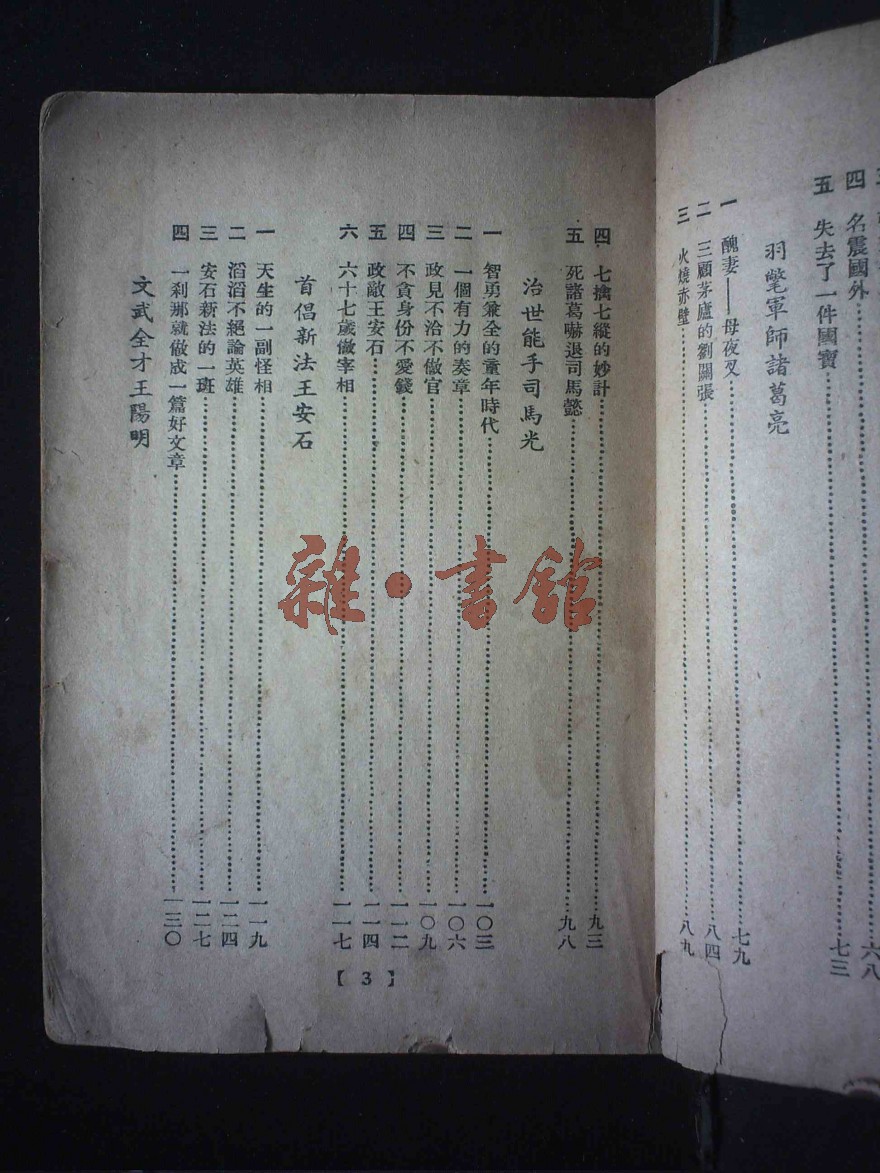 四 名震國外……六八
五 失去了一件國寶……七三
羽氅軍師諸葛亮
一 醜妻——母夜叉……七九
二 三顧茅廬的劉關張……八四
三 火燒赤壁……八九
四 七擒七縱的妙計……九三
五 死諸葛嚇退司馬懿……九八
治世能手司馬光
一 智勇兼全的童年時代……一〇三
二 一個有力的奏章……一〇六
三 政見不洽不做官……一〇九
四 不貪身份不愛錢……一一二
五 政敵王安石……一一四
六 六十七歲做宰相……一一七
首倡新法王安石
一 天生的一副怪相……一一九
二 滔滔不絕論英雄……一二四
三 安石新法的一斑……一二七
四 一刹那就做成一篇好文章……一三〇
文武全才王陽明
【3】
雜·書館